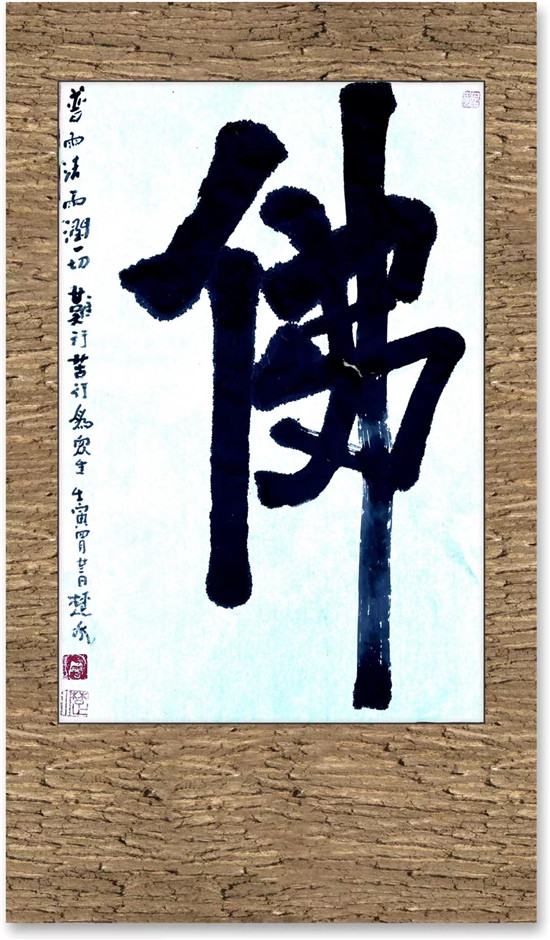 佛
普雨法雨潤一切 甘難行苦行為眾生 壬寅四月廿二日 楚